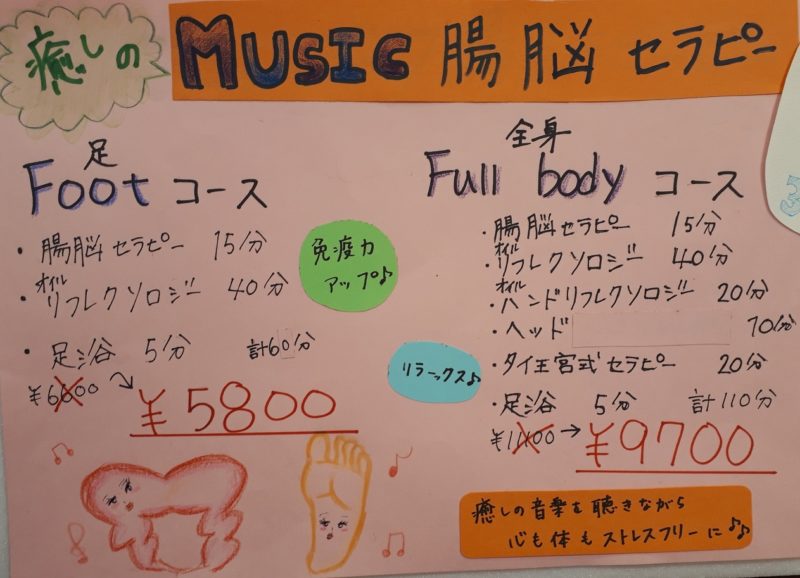 癒しの MUSIC 腸脳セラピー
足
Foot コース
・腸脳セラピー 15分
オイル
・リフレクソロジー 40分
・足浴 5分 計60分
¥6000 → ¥5800
免疫力
アップ♪
リラックス♪
全身
Full body コース
・腸脳セラピー 15分
オイル
・リフレクソロジー 40分
オイル
・ハンドリフレクソロジー 20分
・ヘッド 10分
・タイ王宮式セラピー 20分
・足浴 5分 計110分
¥11400 → ¥9700
癒しの音楽を聴きながら
心も体もストレスフリーに♪♪